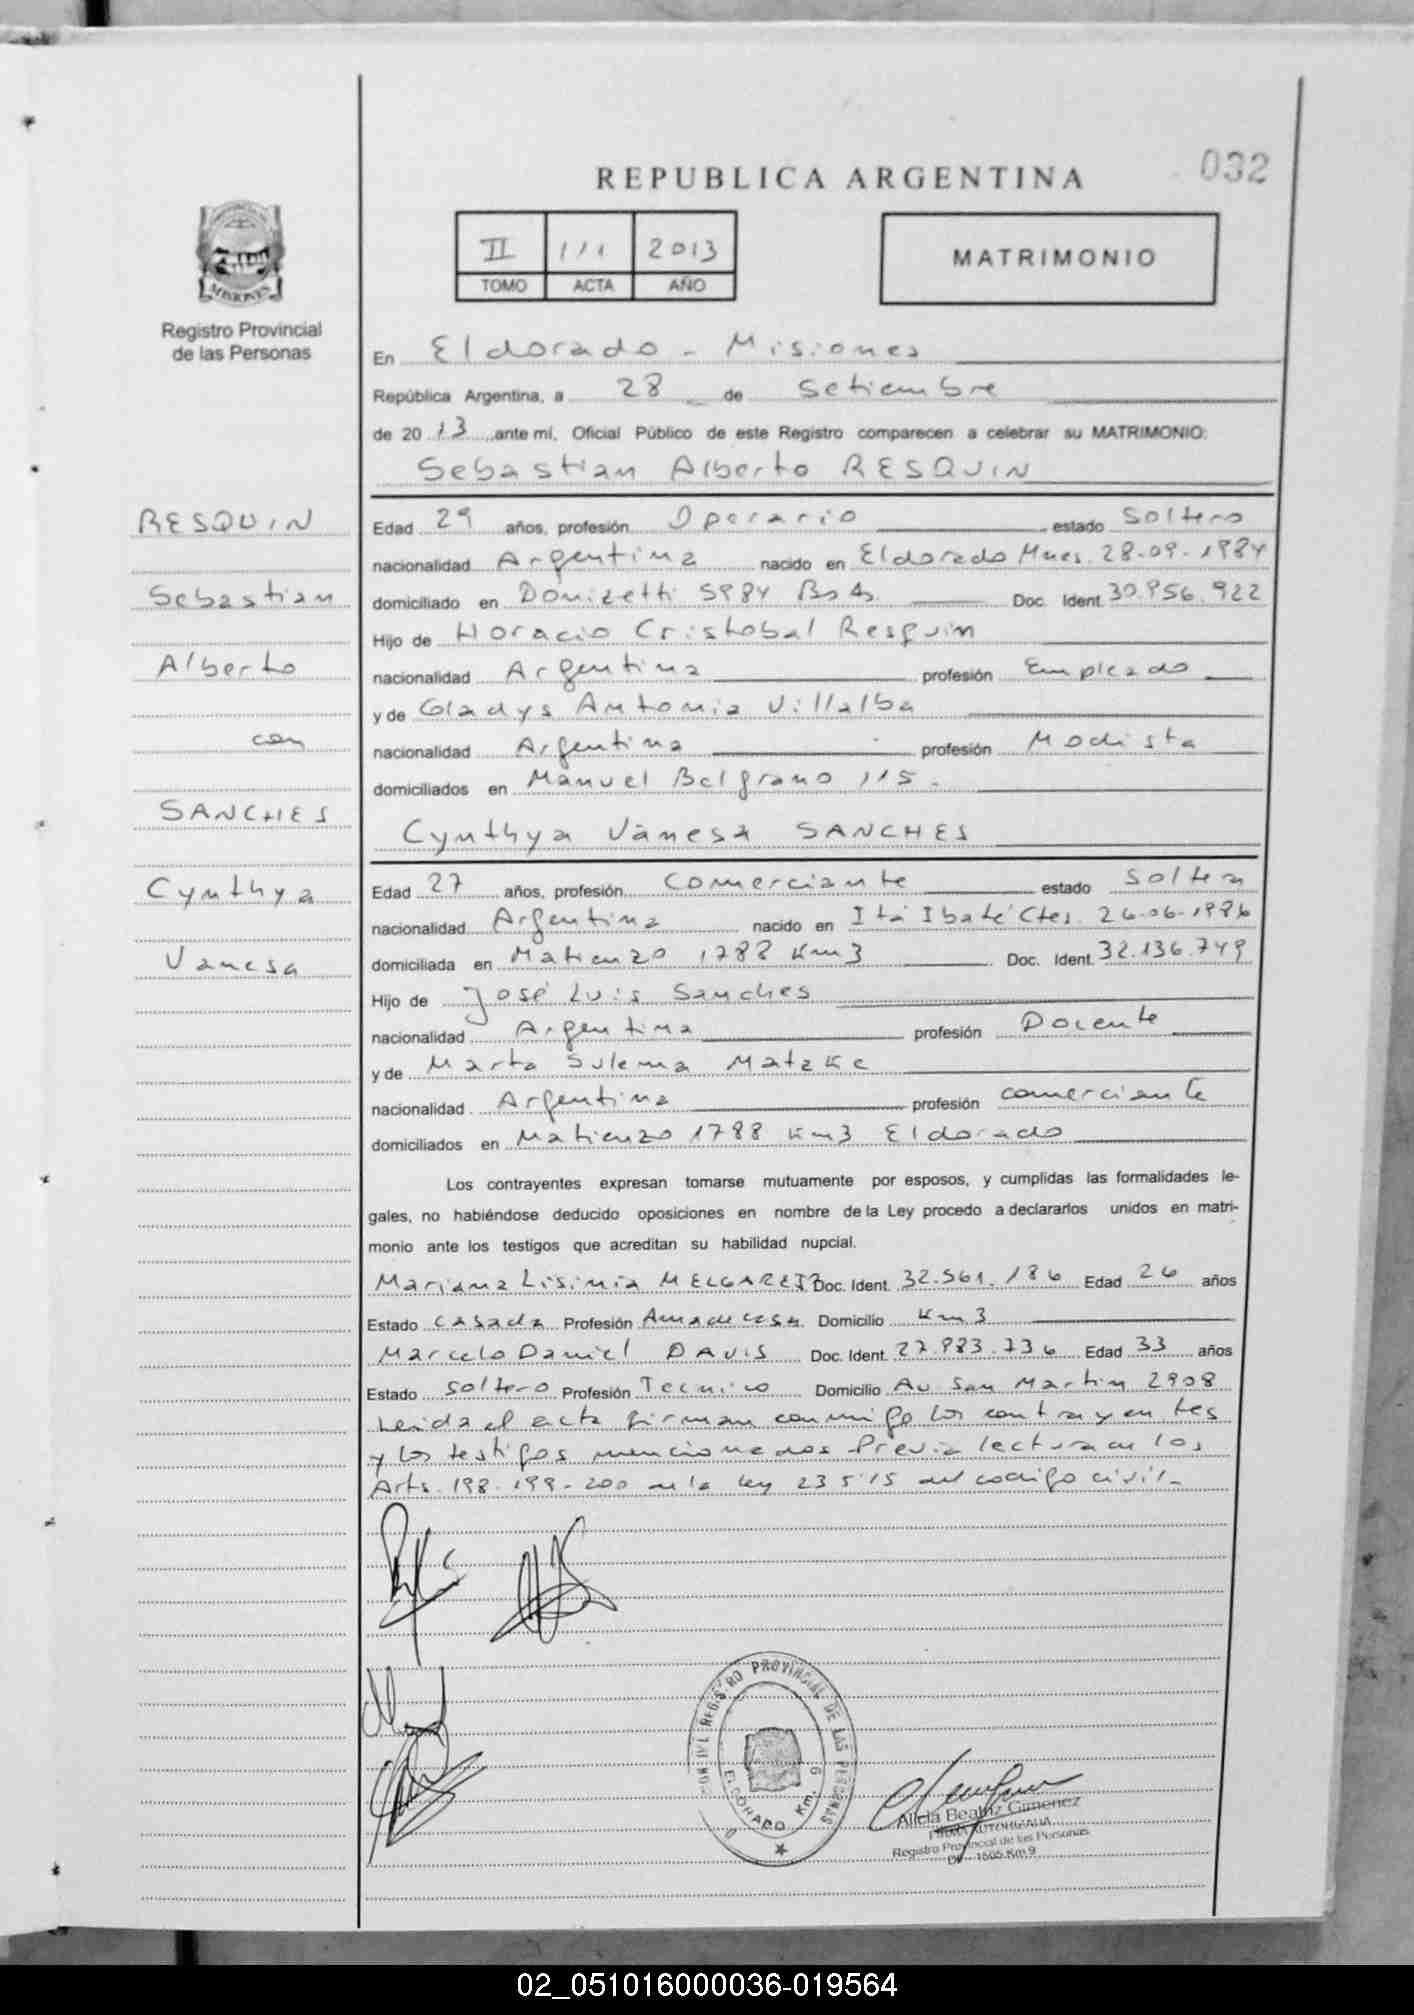 032
REPUBLICA ARGENTINA
II 111 2013
TOMO ACTA AÑO
MATRIMONIO
MISIONES
Registro Provincial
de las Personas
En Eldorado - Misiones
República Argentina, a 28 de Setiembre
de 2013 ante mí, Oficial Público de este Registro comparecen a celebrar su MATRIMONIO:
Sebastian Alberto RESQUIN
RESQUIN
Sebastian
Alberto
con
SANCHES
Cynthya
Vanesa
Edad 29 años, profesión Operario estado Soltero
nacionalidad Argentina nacido en Eldorado Mnes. 28-09-1984
domiciliado en Donizetti 5984 Bs As. Doc. Ident. 30.956.922
Hijo de Horacio Cristobal Resquin
nacionalidad Argentina profesión Empleado
y de Gladys Antonia Villalba
nacionalidad Argentina profesión Modista
domiciliados en Manuel Belgrano 115.
Cynthya Vanesa SANCHES
Edad 27 años, profesión Comerciante estado Soltera
nacionalidad Argentina nacido en Itá Ibaté Ctes. 26-06-1986
domiciliada en Matienzo 1788 Km3 Doc. Ident. 32.136.749
Hijo de José Luis Sanches
nacionalidad Argentina profesión Docente
y de Marta Sulema Matzke
nacionalidad Argentina profesión comerciante
domiciliados en Matienzo 1788 Km3 Eldorado
Los contrayentes expresan tomarse mutuamente por esposos, y cumplidas las formalidades le-
gales, no habiéndose deducido oposiciones en nombre de la Ley procedo a declararlos unidos en matri-
monio ante los testigos que acreditan su habilidad nupcial.
Mariana Lisinia MELGAREJO Doc. Ident. 32.561.186 Edad 26 años
Estado casada Profesión Ama de casa Domicilio Km 3
Marcelo Daniel DAVIS Doc. Ident. 27.983.736 Edad 33 años
Estado soltero Profesión Tecnico Domicilio Av San Martin 2908
Leida el acta firman conmigo los contrayentes
y los testigos mencionados Previa lectura de los
Arts. 198-199-200 de la ley 23515 del codigo civil-
REGISTRO PROVINCIAL DE LAS PERSONAS
ELDORADO Km. 9
Alicia Beatriz Gimenez
FIRMA AUTORIZADA
Registro Provincial de las Personas
1605 Km 9
02_051016000036-019564